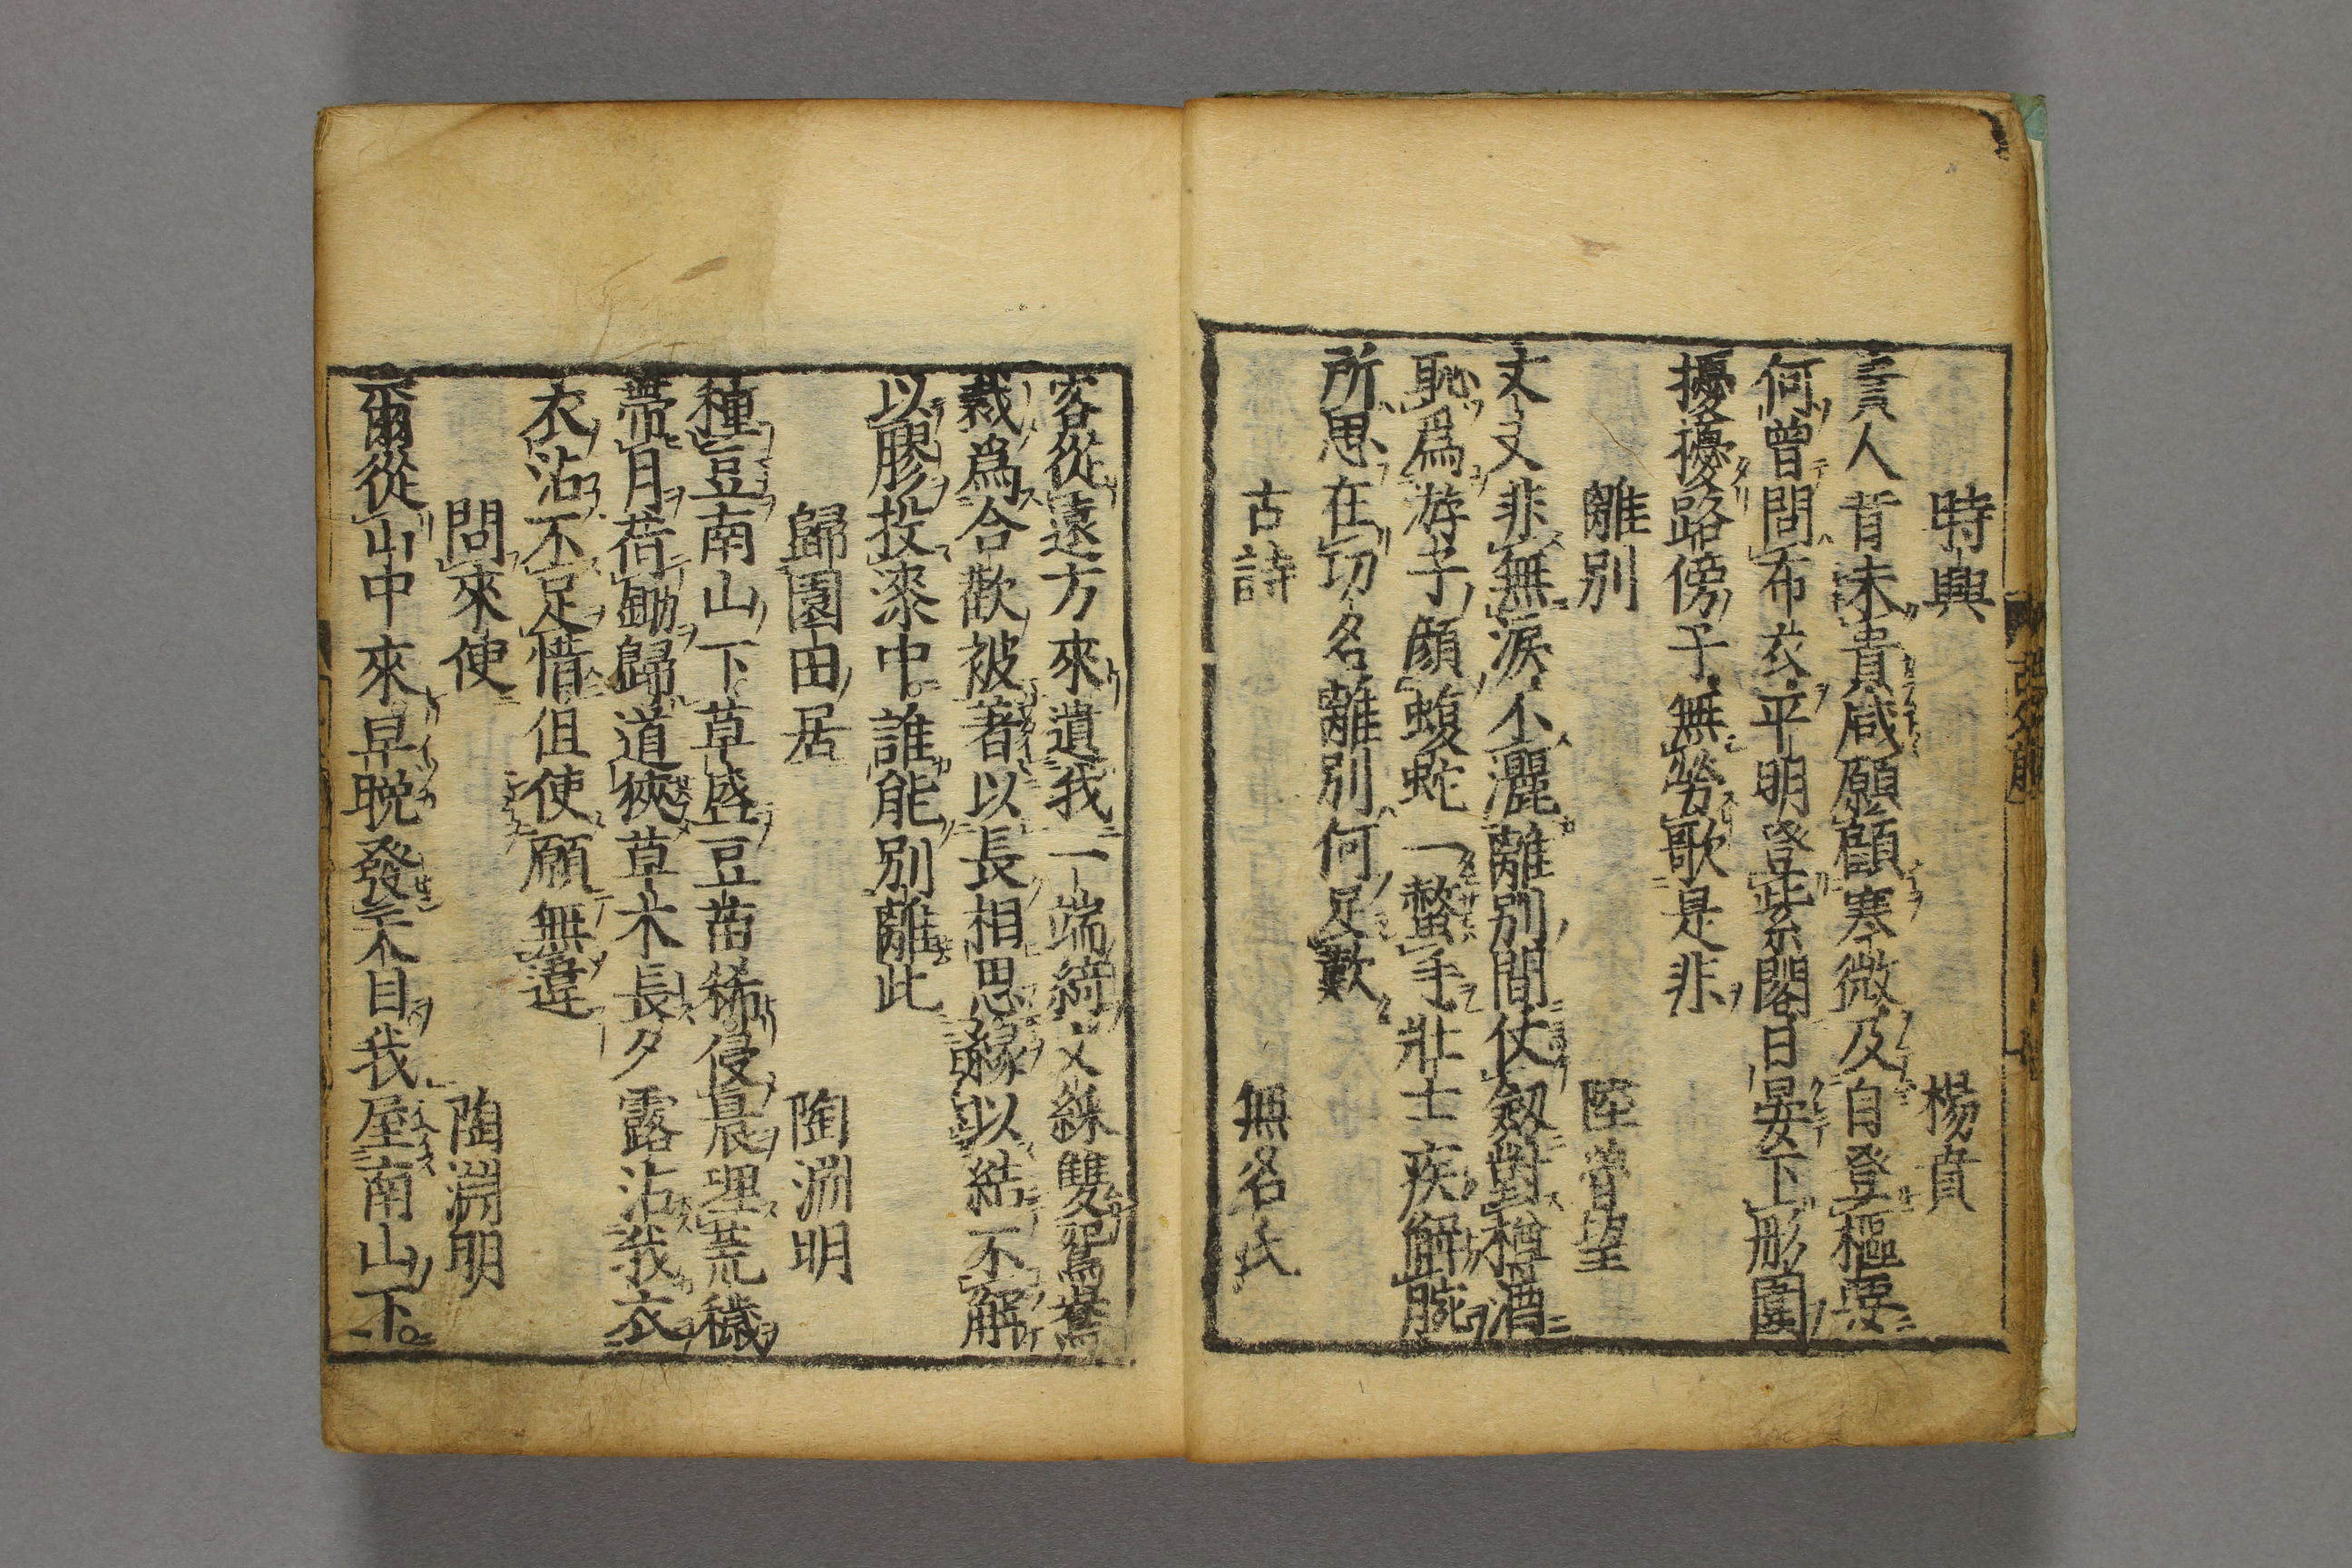 時興　楊賁
貴人昔未貴咸願顧寒微及自登樞要
何曾問布衣平明登紫閣日晏下彤闈
擾擾路傍子無勞歌是非
離別　陸曾望
丈夫非無淚不灑離別間仗劔對樽酒
恥爲游子顔蝮蛇一螫手壯士疾解腕
所思在功名離別何足歎
古詩　無名氏
客從遠方來遺我一端綺文綵雙鴛鴦
裁爲合歡被著以長相思緣以結不解
以膠投漆中誰能別離此
歸園田居　陶渊明
種豆南山下草盛豆苗稀侵晨理荒穢
帶月荷鋤歸道狹草木長夕露沾我衣
衣沾不足惜但使願無違
問來使　陶渊明
爾從山中來早晚發天目我屋南山下